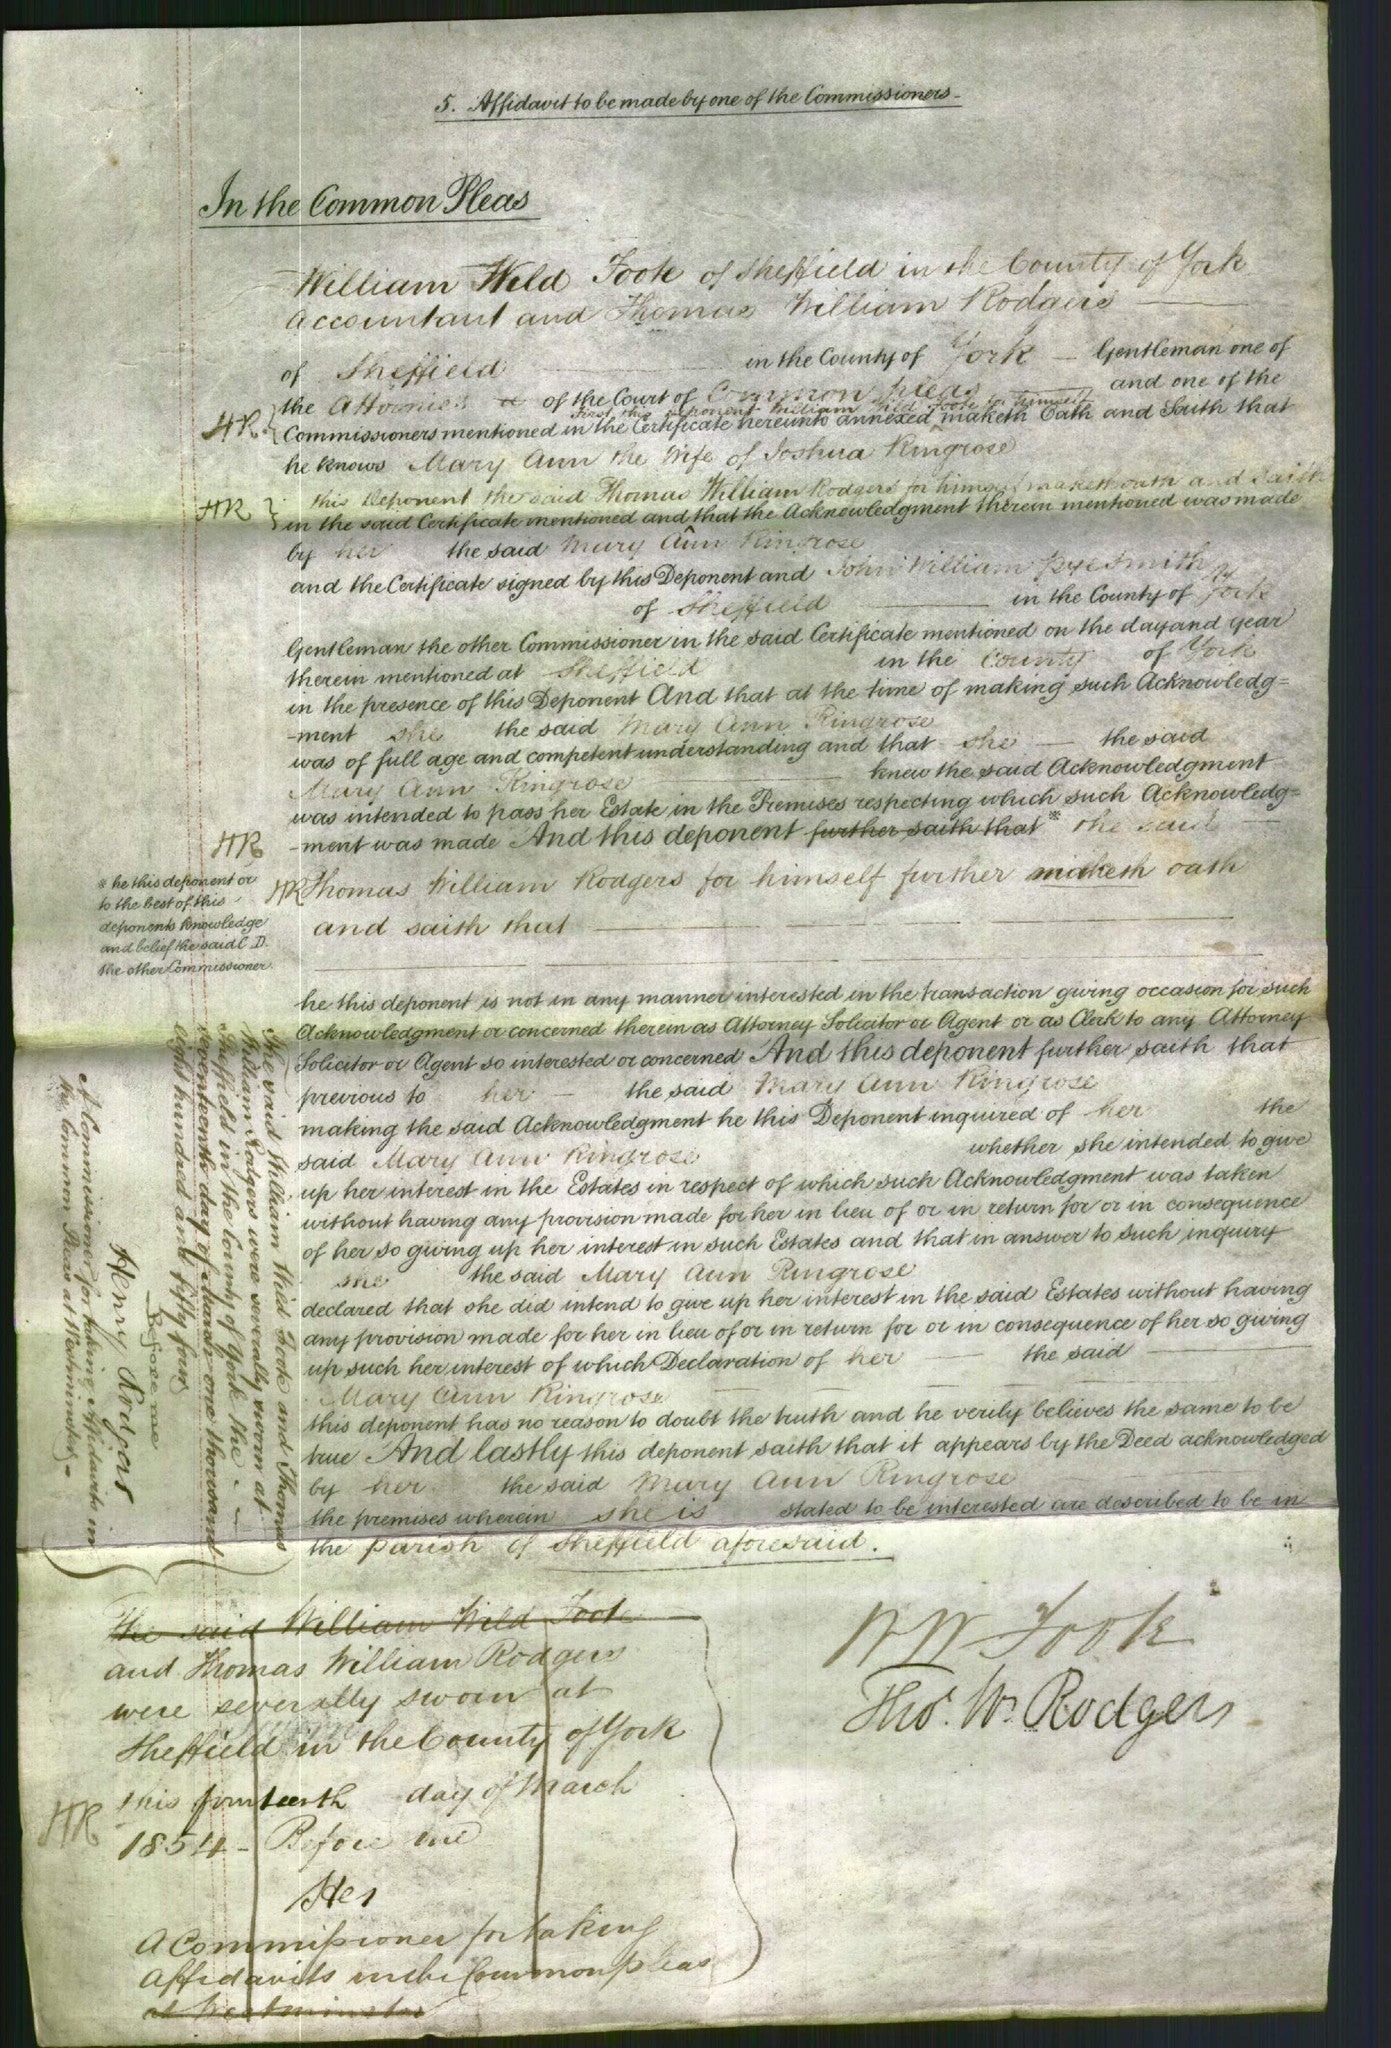 5. Affidavit to be made by one of the Commissioners
In the Common Pleas
William Wild Fook of Sheffield in the County of York
Accountant and Thomas William Rodgers
of Sheffield in the County of York Gentleman one of
the Attornies of the Court of Common Pleas and one of the
first this deponent William Wild Fook for himself
HR Commissioners mentioned in the Certificate hereunto annexed maketh Oath and Saith that
he knows Mary Ann the Wife of Joshua Ringrose
HR this Deponent the said Thomas William Rodgers for himself maketh oath and saith
in the said Certificate mentioned and that the Acknowledgment therein mentioned was made
by her the said Mary Ann Ringrose
and the Certificate signed by this Deponent and John William Pye Smith
of Sheffield in the County of York
Gentleman the other Commissioner in the said Certificate mentioned on the day and year
therein mentioned at Sheffield in the County of York
in the presence of this Deponent And that at the time of making such Acknowledg=
-ment she the said Mary Ann Ringrose
was of full age and competent understanding and that she the said
Mary Ann Ringrose knew the said Acknowledgment
was intended to pass her Estate in the Premises respecting which such Acknowledg=
-ment was made And this deponent further saith that * the said
HR
HR Thomas William Rodgers for himself further maketh oath
and saith that
* he this deponent or
to the best of this
deponents knowledge
and belief the said C D.
the other Commissioner
he this deponent is not in any manner interested in the transaction giving occasion for such
Acknowledgment or concerned therein as Attorney Solicitor or Agent or as Clerk to any Attorney
Solicitor or Agent so interested or concerned And this deponent further saith that
previous to her the said Mary Ann Ringrose
making the said Acknowledgment he this Deponent inquired of her the
said Mary Ann Ringrose whether she intended to give
up her interest in the Estates in respect of which such Acknowledgment was taken
without having any provision made for her in lieu of or in return for or in consequence
of her so giving up her interest in such Estates and that in answer to such inquiry
she the said Mary Ann Ringrose
declared that she did intend to give up her interest in the said Estates without having
any provision made for her in lieu of or in return for or in consequence of her so giving
up such her interest of which Declaration of her the said
Mary Ann Ringrose
this deponent has no reason to doubt the truth and he verily believes the same to be
true And lastly this deponent saith that it appears by the Deed acknowledged
by her the said Mary Ann Ringrose
the premises wherein she is stated to be interested are described to be in
the parish of Sheffield aforesaid.
The said William Wild Fook and Thomas
William Rodgers were severally sworn at
Sheffield in the County of York the
seventeenth day of March one thousand
eight hundred and fifty four
Before me
Henry Rodgers
A Commissioner for taking Affidavits in
the Common Pleas at Westminster
The said William Wild Fook
and Thomas William Rodgers
were severally sworn at
Sheffield in the County of York
this fourteenth day of March
HR
1854 - Before me
Hen
A Commissioner for taking
Affidavits in the Common pleas
at Westminster
W W Fook
Thos. Wm. Rodgers